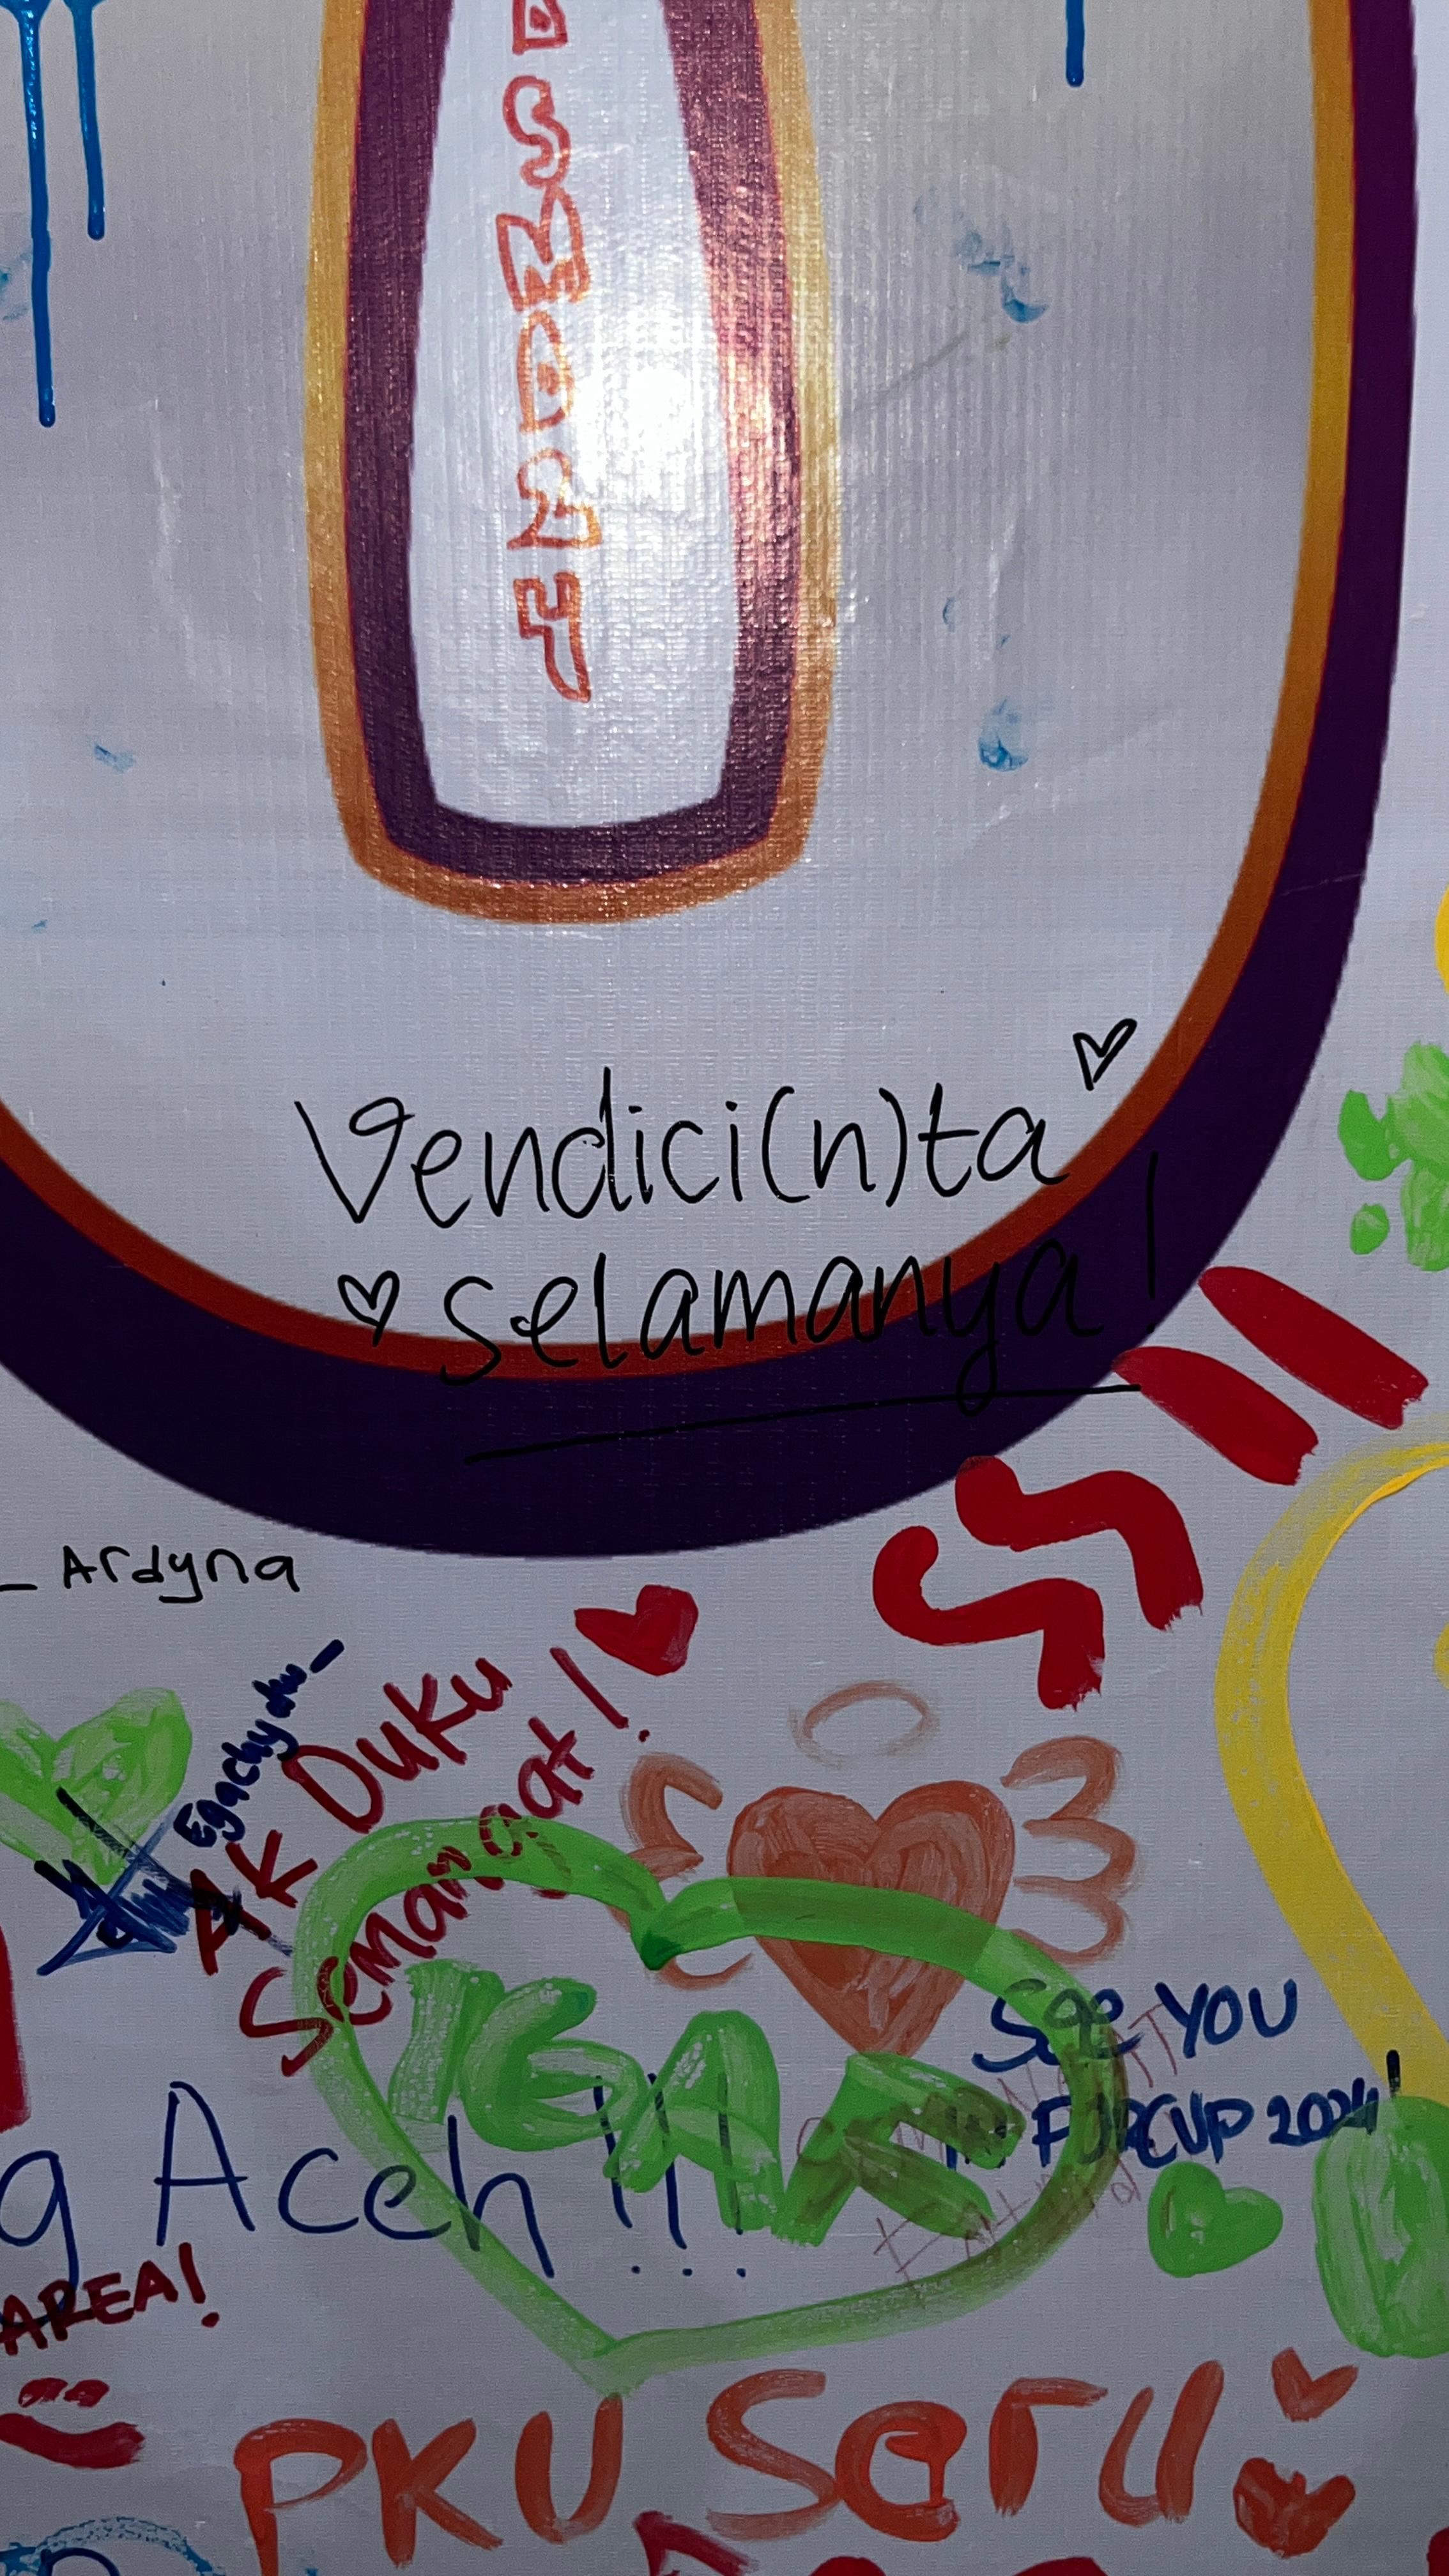 Vendici(n)ta
selamanya!
_ Ardyna
Egachydu_
AK DUKU
Semangat!
See YOU
IN FORCUP 2024!
g Aceh !!!
AREA!
PKU Seru